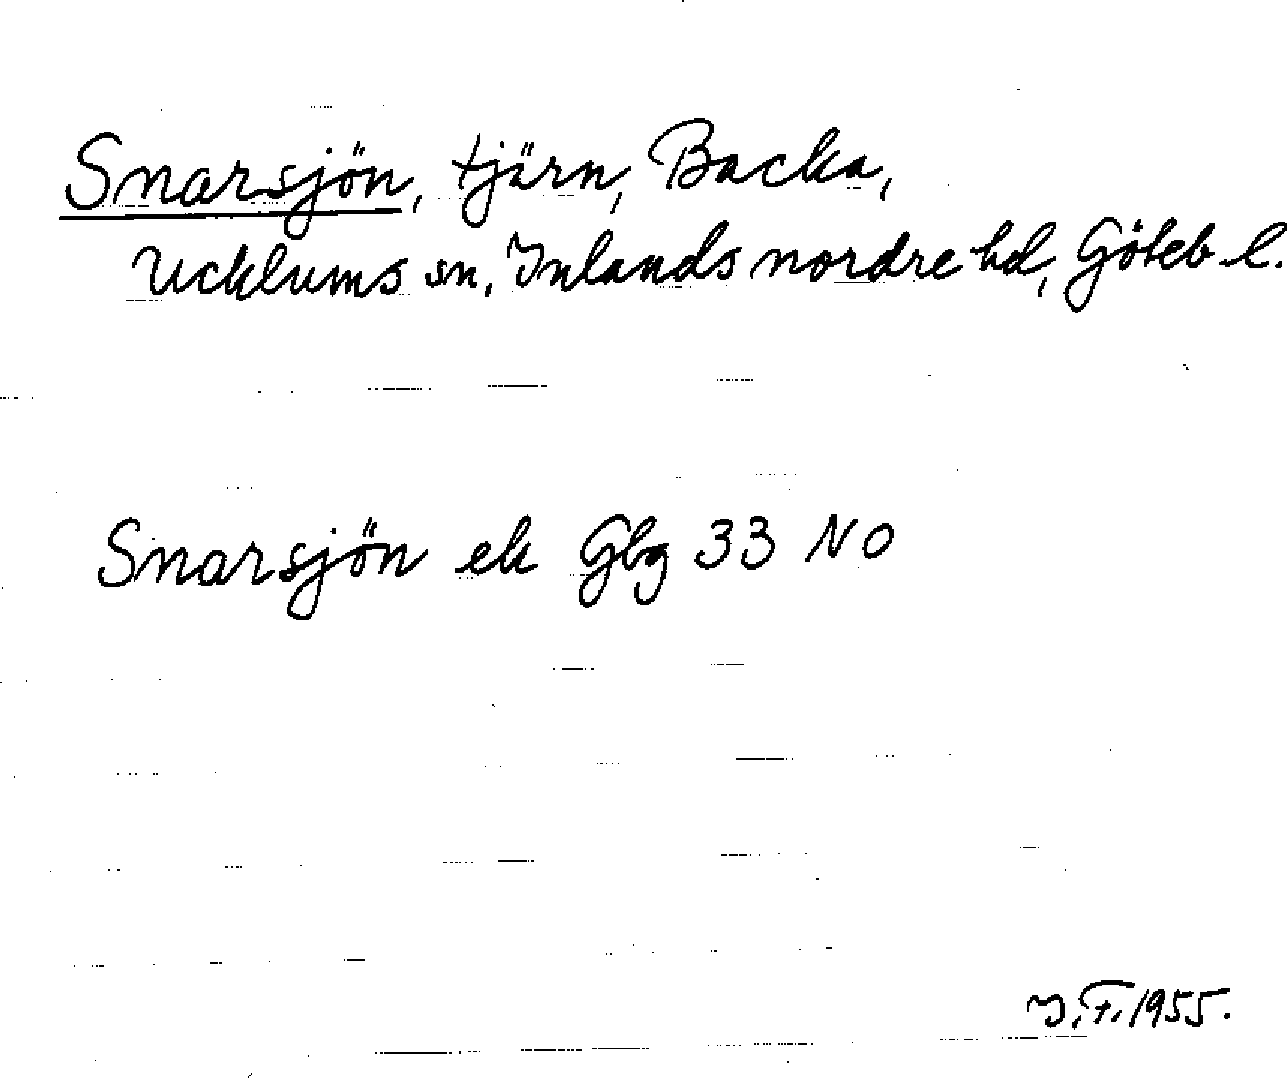 Snarsjön, tjärn, Backa,
Ucklums sn, Inlands nordre hd, Göteb. l.
Snarsjön ek Gbg 33 NO
I.F. 1955.